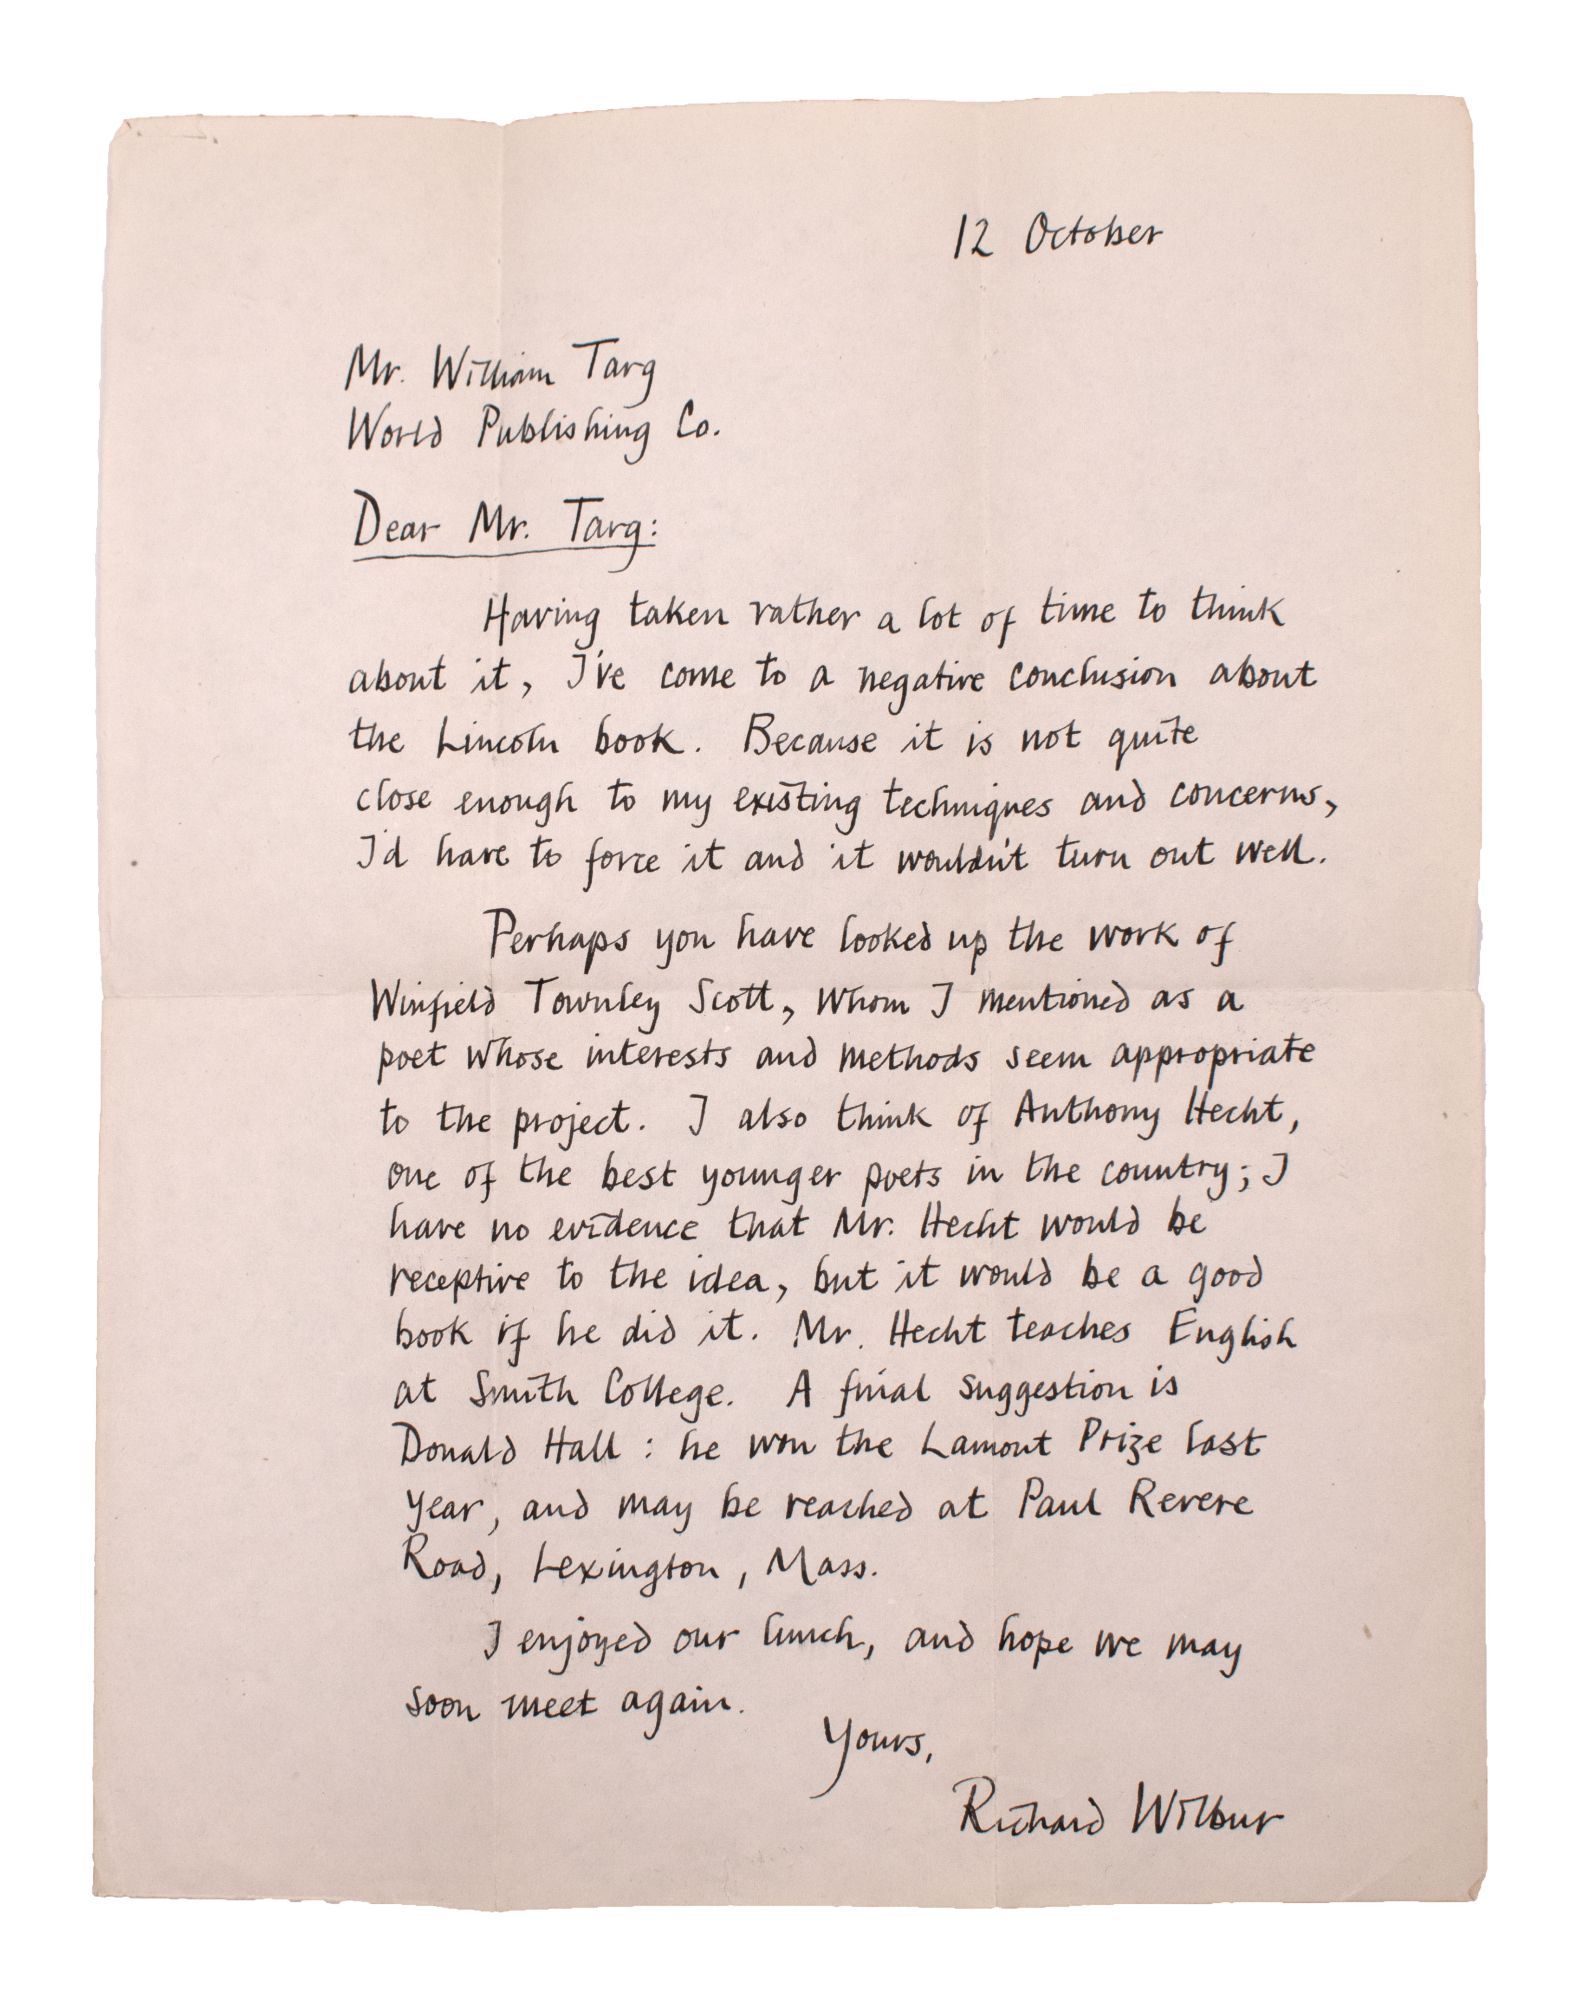 12 October
Mr. William Targ
World Publishing Co.
Dear Mr. Targ:
Having taken rather a lot of time to think
about it, I've come to a negative conclusion about
the Lincoln book. Because it is not quite
close enough to my existing techniques and concerns,
I'd have to force it and it wouldn't turn out well.
Perhaps you have looked up the work of
Winfield Townley Scott, whom I mentioned as a
poet whose interests and methods seem appropriate
to the project. I also think of Anthony Hecht,
one of the best younger poets in the country; I
have no evidence that Mr. Hecht would be
receptive to the idea, but it would be a good
book if he did it. Mr. Hecht teaches English
at Smith College. A final suggestion is
Donald Hall: he won the Lamont Prize last
year, and may be reached at Paul Revere
Road, Lexington, Mass.
I enjoyed our lunch, and hope we may
soon meet again.
Yours,
Richard Wilbur